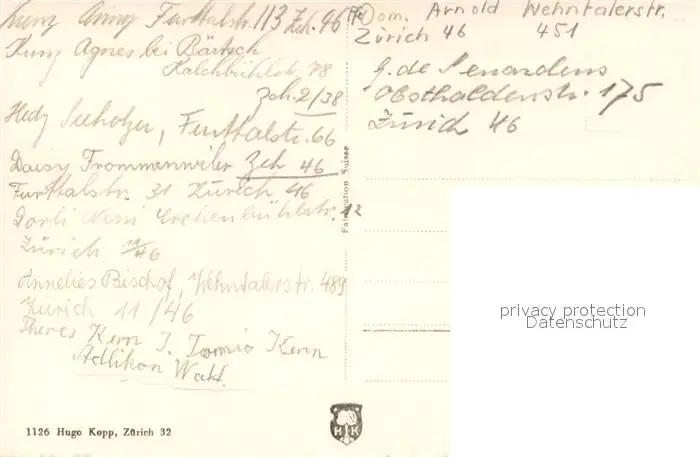 Kunz Anny Furttalstr. 113 Zch. 46
Kunz Agnes bei Bärtsch
Kalchbühlstr. 78
Zch. 2/38
Hedy Seeholzer, Furttalstr. 66
Daisy Trommenwiler Zch 46
Furttalstr. 31 Zürich 46
Dorli Nessi Lerchenbühlstr. 12
Zürich 11/46
Annelies Bischof, Wehntalerstr. 489
Zürich 11/46
Theres Kern J. Kern
Adlikon Wat.
1126 Hugo Kopp, Zürich 32
Fabrication Suisse
Dom. Arnold Wehntalerstr.
Zürich 46 451
G. de Senardens
Obsthaldenstr. 175
Zürich 46
H K
privacy protection
Datenschutz